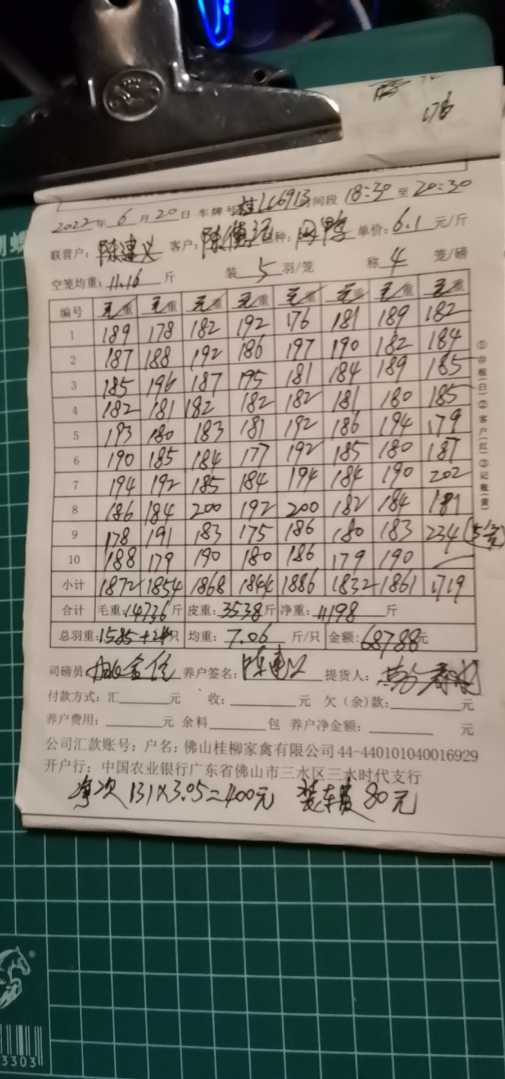 178
2022年6月20日 车牌号 桂LC6913 时间段 18:30 至 20:30
联营户: 陈建义 客户: 陈 种: 肉鸭 单价: 6.1 元/斤
空笼均重: 11.16 斤 装 5 羽/笼 称 4 笼/磅
编号 毛重 毛重 毛重 毛重 毛重 毛重 毛重 毛重
1 189 178 182 192 176 181 189 182
2 187 188 192 186 197 190 182 184
3 185 196 187 195 181 184 189 185
4 182 181 182 182 182 181 180 185
5 193 180 183 181 192 186 194 179
6 190 185 184 177 192 185 180 187
7 194 192 185 184 194 184 190 202
8 186 184 200 192 200 182 184 181
9 178 191 183 175 186 180 183 234 (5笼)
10 188 179 190 180 186 179 190
小计 1872 1854 1868 1844 1886 1832 1861 1719
合计 毛重: 14736 斤 皮重: 3538 斤 净重: 11198 斤
总羽重: 1585+2只 均重: 7.06 斤/只 金额: 68788元
司磅员 养户签名: 陈建义 提货人:
付款方式: 汇 元 收: 元 欠(余)款: 元
养户费用: 元 余料 包 养户净金额: 元
公司汇款账号: 户名: 佛山桂柳家禽有限公司 44-440101040016929
开户行: 中国农业银行广东省佛山市三水区三水时代支行
131×3.05=400元 装车费 80元
①存根(白)②客户(红)③记账(黄)
3303